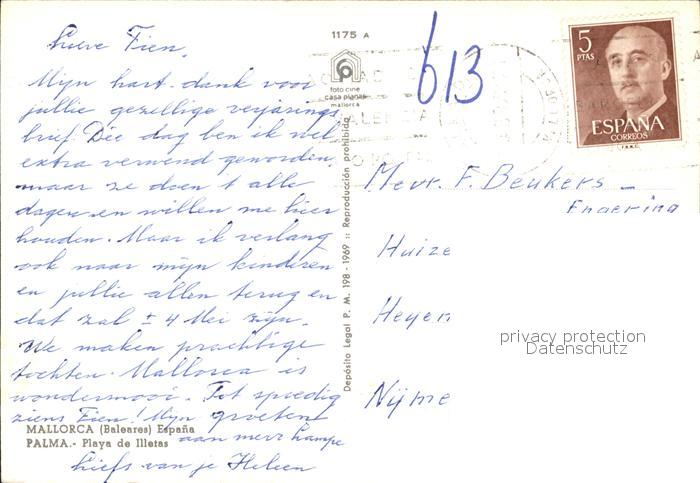 1175 A
Lieve Fien,
foto cine
casa planas
mallorca
613
5
PTAS
ESPAÑA
CORREOS
Mijn hart. dank voor
jullie gezellige verjaarings
brief Die dag ben ik wel
extra verwend geworden,
maar ze doen t alle
dagen en willen me hier
houden. Maar ik verlang
ook naar mijn kinderen
en jullie allen terug en
dat zal ± 4 Mei zijn.
We maken prachtige
tochten. Mallorca is
wondermooi. Tot spoedig
ziens Fien! Mijn groeten
aan mevr
Liefs van je Heleen
MALLORCA (Baleares) España
PALMA.- Playa de Illetas
Depósito Legal P. M. 198 - 1969 :: Reproducción prohibida
Mevr. F. Beukers -
Huize
Heyen
Nijme
privacy protection
Datenschutz